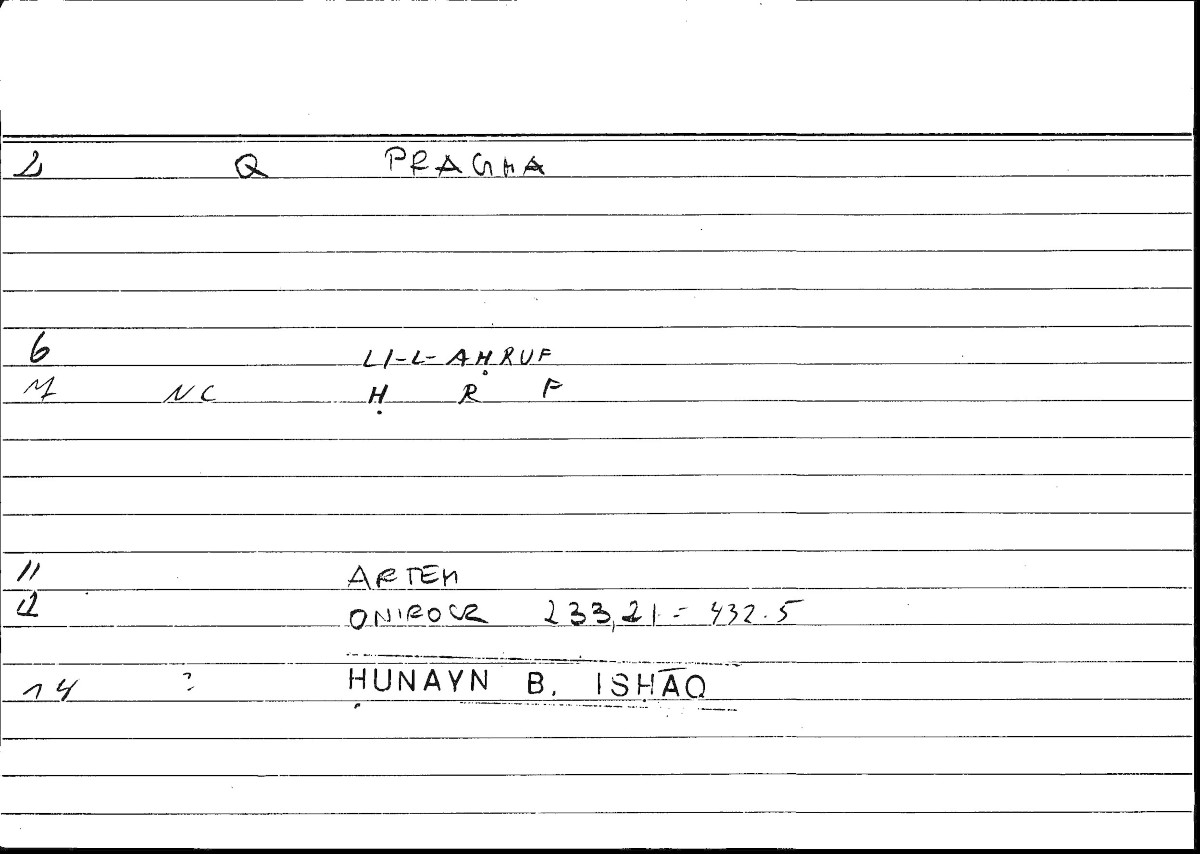 2 Q PRAGMA
6 LI-L-AḤRUF
M NC Ḥ R F
11 ARTEM
12 ONIROCR 233,21 = 432.5
14 ? ḤUNAYN B. ISḤĀQ